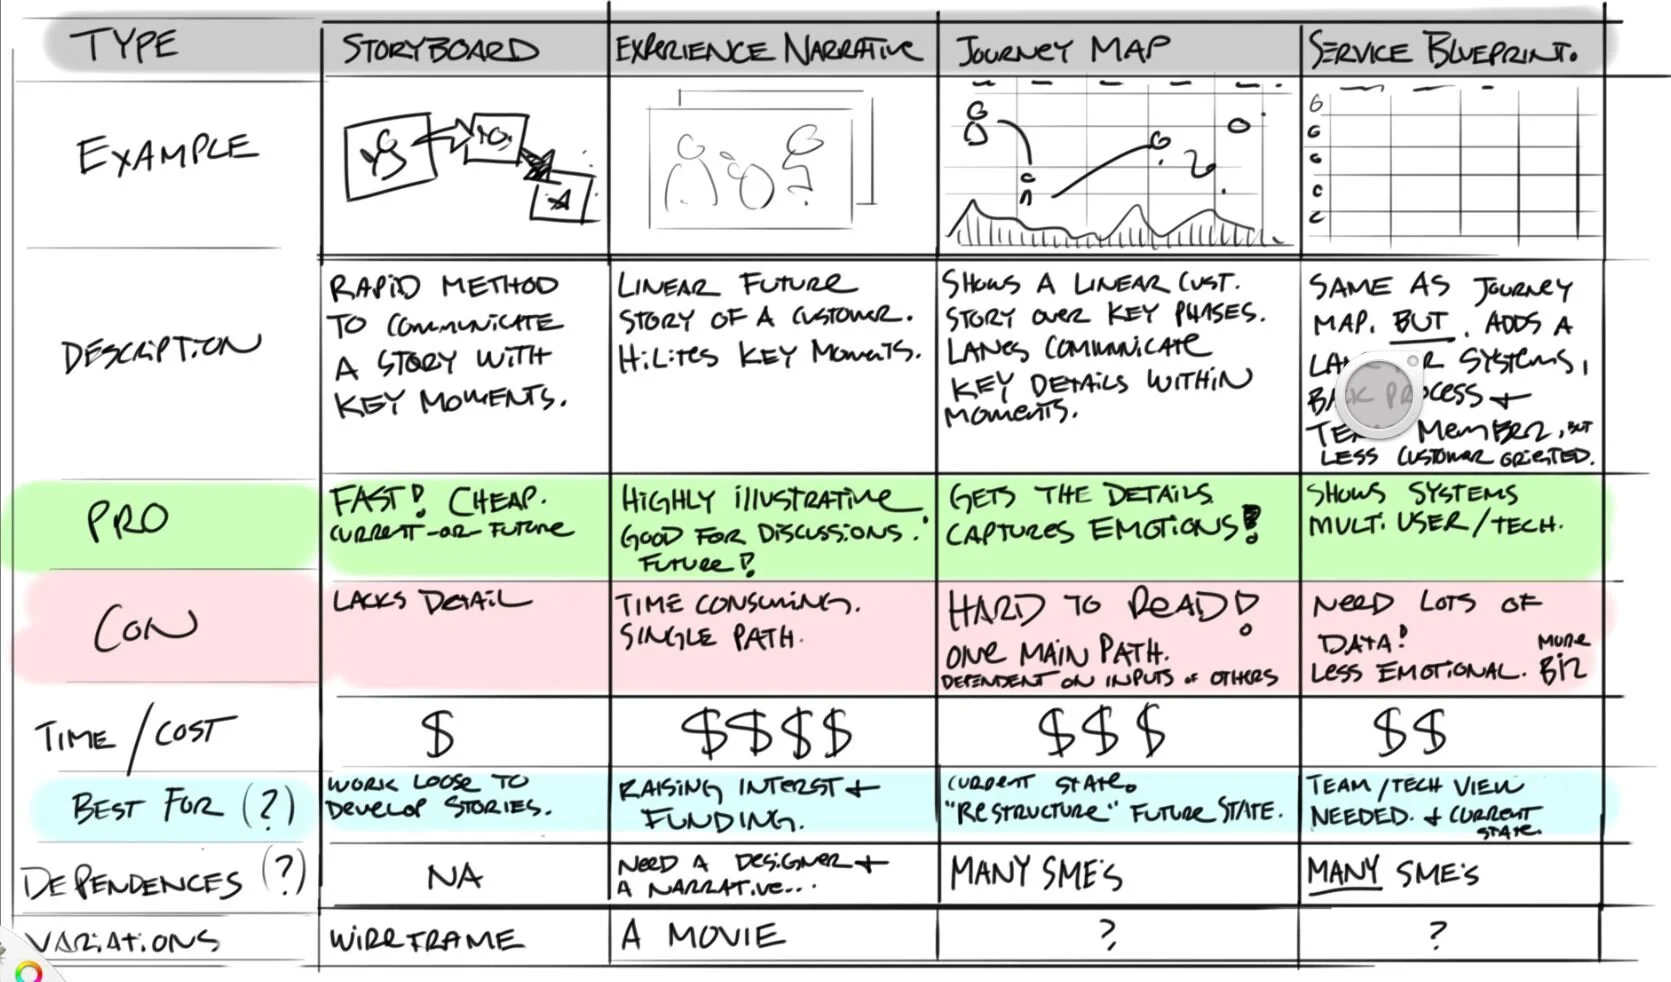 TYPE
STORYBOARD
EXPERIENCE NARRATIVE
JOURNEY MAP
SERVICE BLUEPRINT.
EXAMPLE
DESCRIPTION
RAPID METHOD
TO COMMUNICATE
A STORY WITH
KEY MOMENTS.
LINEAR FUTURE
STORY OF A CUSTOMER.
HILITES KEY MOMENTS.
SHOWS A LINEAR CUST.
STORY OVER KEY PHASES.
LANES COMMUNICATE
KEY DETAILS WITHIN
MOMENTS.
SAME AS JOURNEY
MAP. BUT. ADDS A
SYSTEMS,
BACK PROCESS +
MEMBER, BUT
LESS CUSTOMER ORIENTED.
PRO
FAST! CHEAP.
CURRENT-OR-FUTURE
HIGHLY ILLUSTRATIVE
GOOD FOR DISCUSSIONS.
FUTURE!
GETS THE DETAILS
CAPTURES EMOTIONS!
SHOWS SYSTEMS
MULTI USER/TECH.
CON
LACKS DETAIL
TIME CONSUMING.
SINGLE PATH.
HARD TO READ!
ONE MAIN PATH.
DEPENDENT ON INPUTS OF OTHERS
NEED LOTS OF
DATA! MORE
LESS EMOTIONAL. BIZ
TIME/COST
$
$$$$
$$$
$$
BEST FOR (?)
WORK LOOSE TO
DEVELOP STORIES.
RAISING INTERST +
FUNDING.
CURRENT STATE.
"RESTRUCTURE" FUTURE STATE.
TEAM/TECH VIEW
NEEDED. + CURRENT
STATE.
DEPENDENCES (?)
NA
NEED A DESIGNER +
A NARRATIVE...
MANY SME'S
MANY SME'S
VARIATIONS
WIREFRAME
A MOVIE
?
?